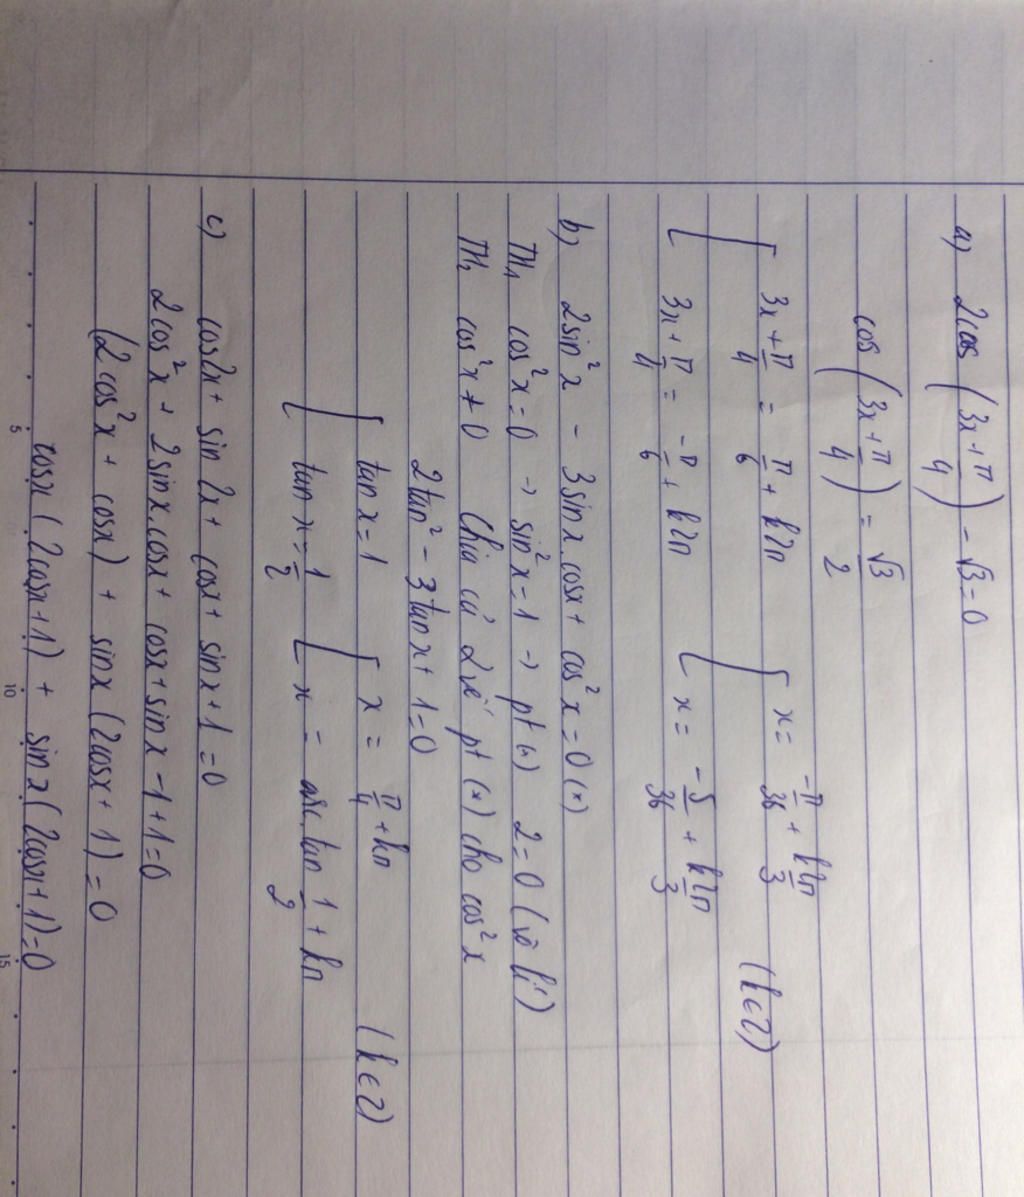 a) 2cos (3x + π/4) - √3 = 0
cos (3x + π/4) = √3/2
[ 3x + π/4 = π/6 + k2π [ x = -π/36 + k2π/3
[ 3x + π/4 = -π/6 + k2π [ x = -5/36 + k2π/3 (k∈Z)
b) 2sin²x - 3sinx.cosx + cos²x = 0 (*)
TH₁ cos²x = 0 → sin²x = 1 → pt (*) 2 = 0 (vô lí)
TH₂ cos²x ≠ 0 Chia cả 2 vế pt (*) cho cos²x
2tan² - 3tanx + 1 = 0
[ tanx = 1 [ x = π/4 + kπ (k∈Z)
[ tanx = 1/2 [ x = arc.tan 1/2 + kπ
c) cos2x + sin2x + cosx + sinx + 1 = 0
2cos²x + 2sinx.cosx + cosx + sinx - 1 + 1 = 0
(2cos²x + cosx) + sinx (2cosx + 1) = 0
cosx (2cosx + 1) + sinx (2cosx + 1) = 0
5 10 15